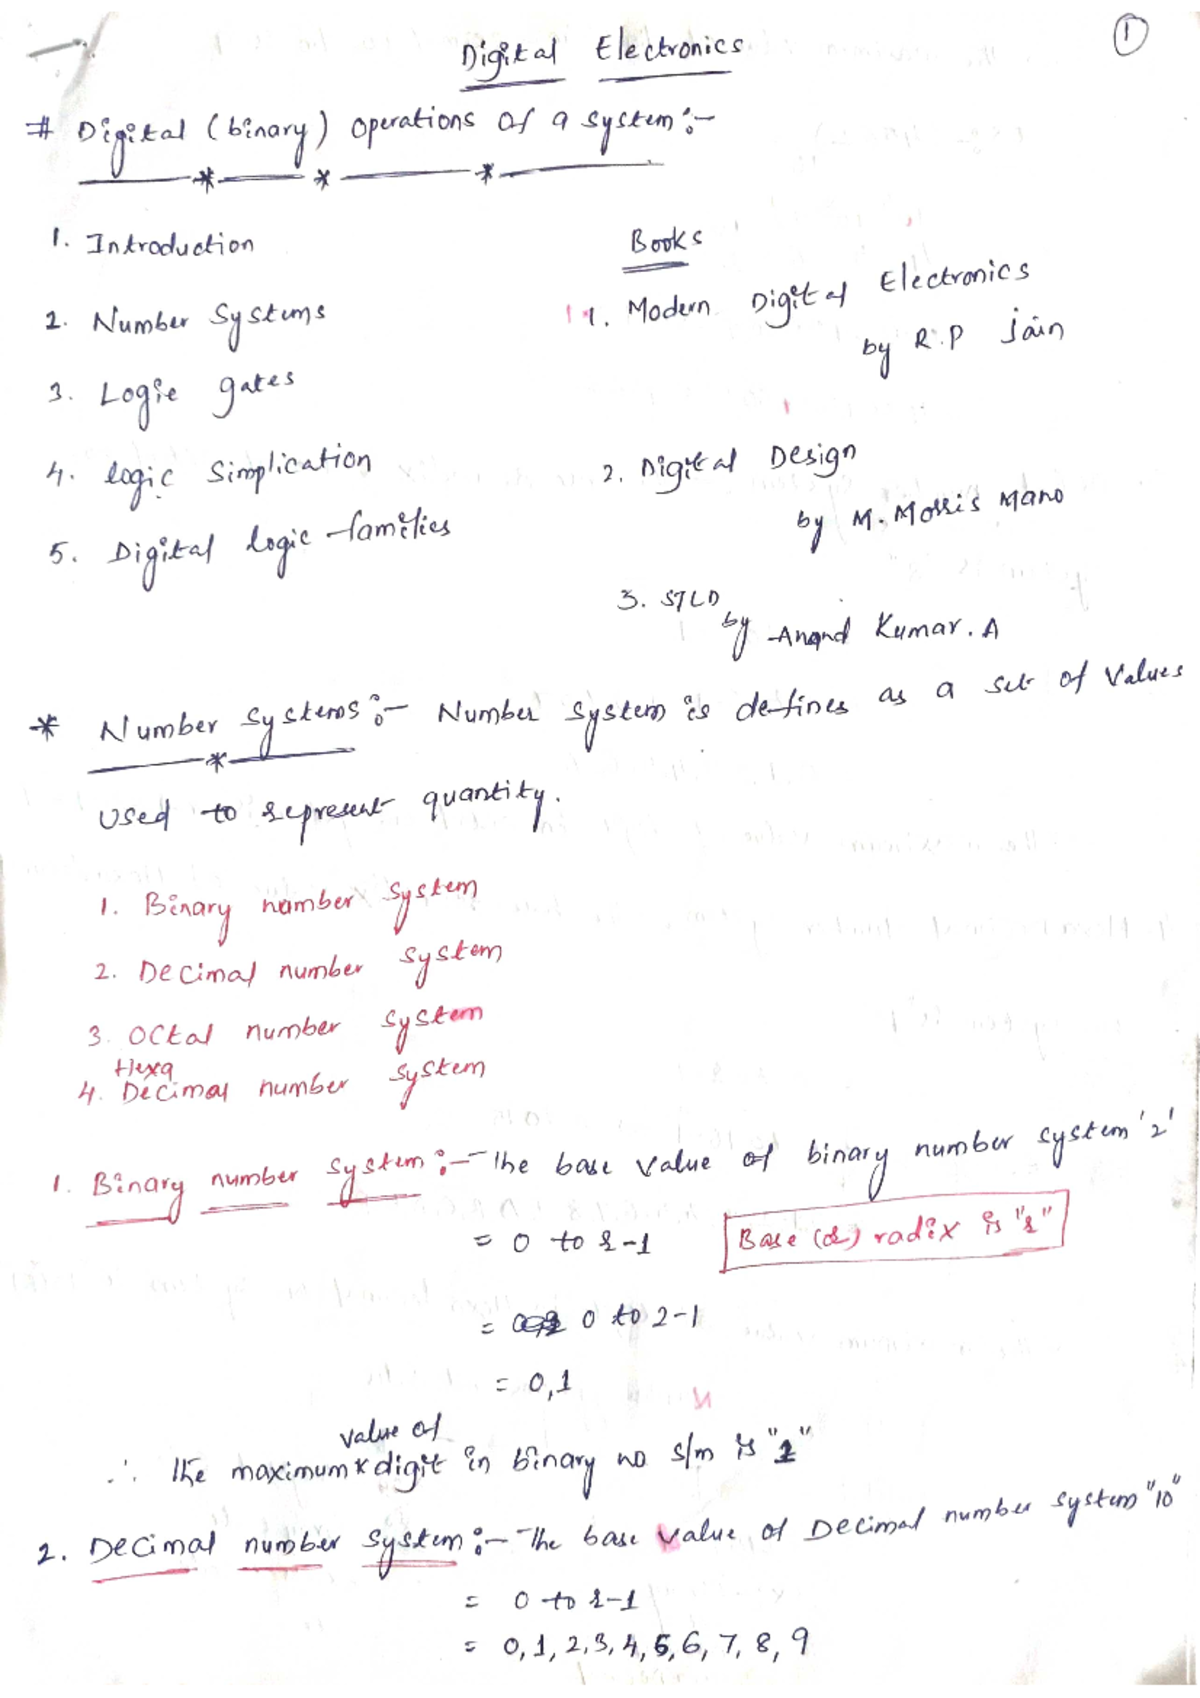 1
Digital Electronics
# Digital (binary) operations of a system :-
1. Introduction
2. Number Systems
3. Logic gates
4. logic Simplication
5. Digital logic families
Books
1. Modern Digital Electronics
by R.P Jain
2. Digital Design
by M. Morris Mano
3. STLD
by Anand Kumar. A
* Number systems :- Number system is defines as a set of values
used to represent quantity.
1. Binary number system
2. Decimal number system
3. Octal number system
4. Hexa Decimal number system
1. Binary number system :- The base value of binary number system '2'
= 0 to r-1
Base (or) radix is "r"
= 0 to 2-1
= 0,1
∴ The maximum value of digit in binary no s/m is "1"
2. Decimal number system :- The base value of Decimal number system "10"
= 0 to r-1
= 0, 1, 2, 3, 4, 5, 6, 7, 8, 9